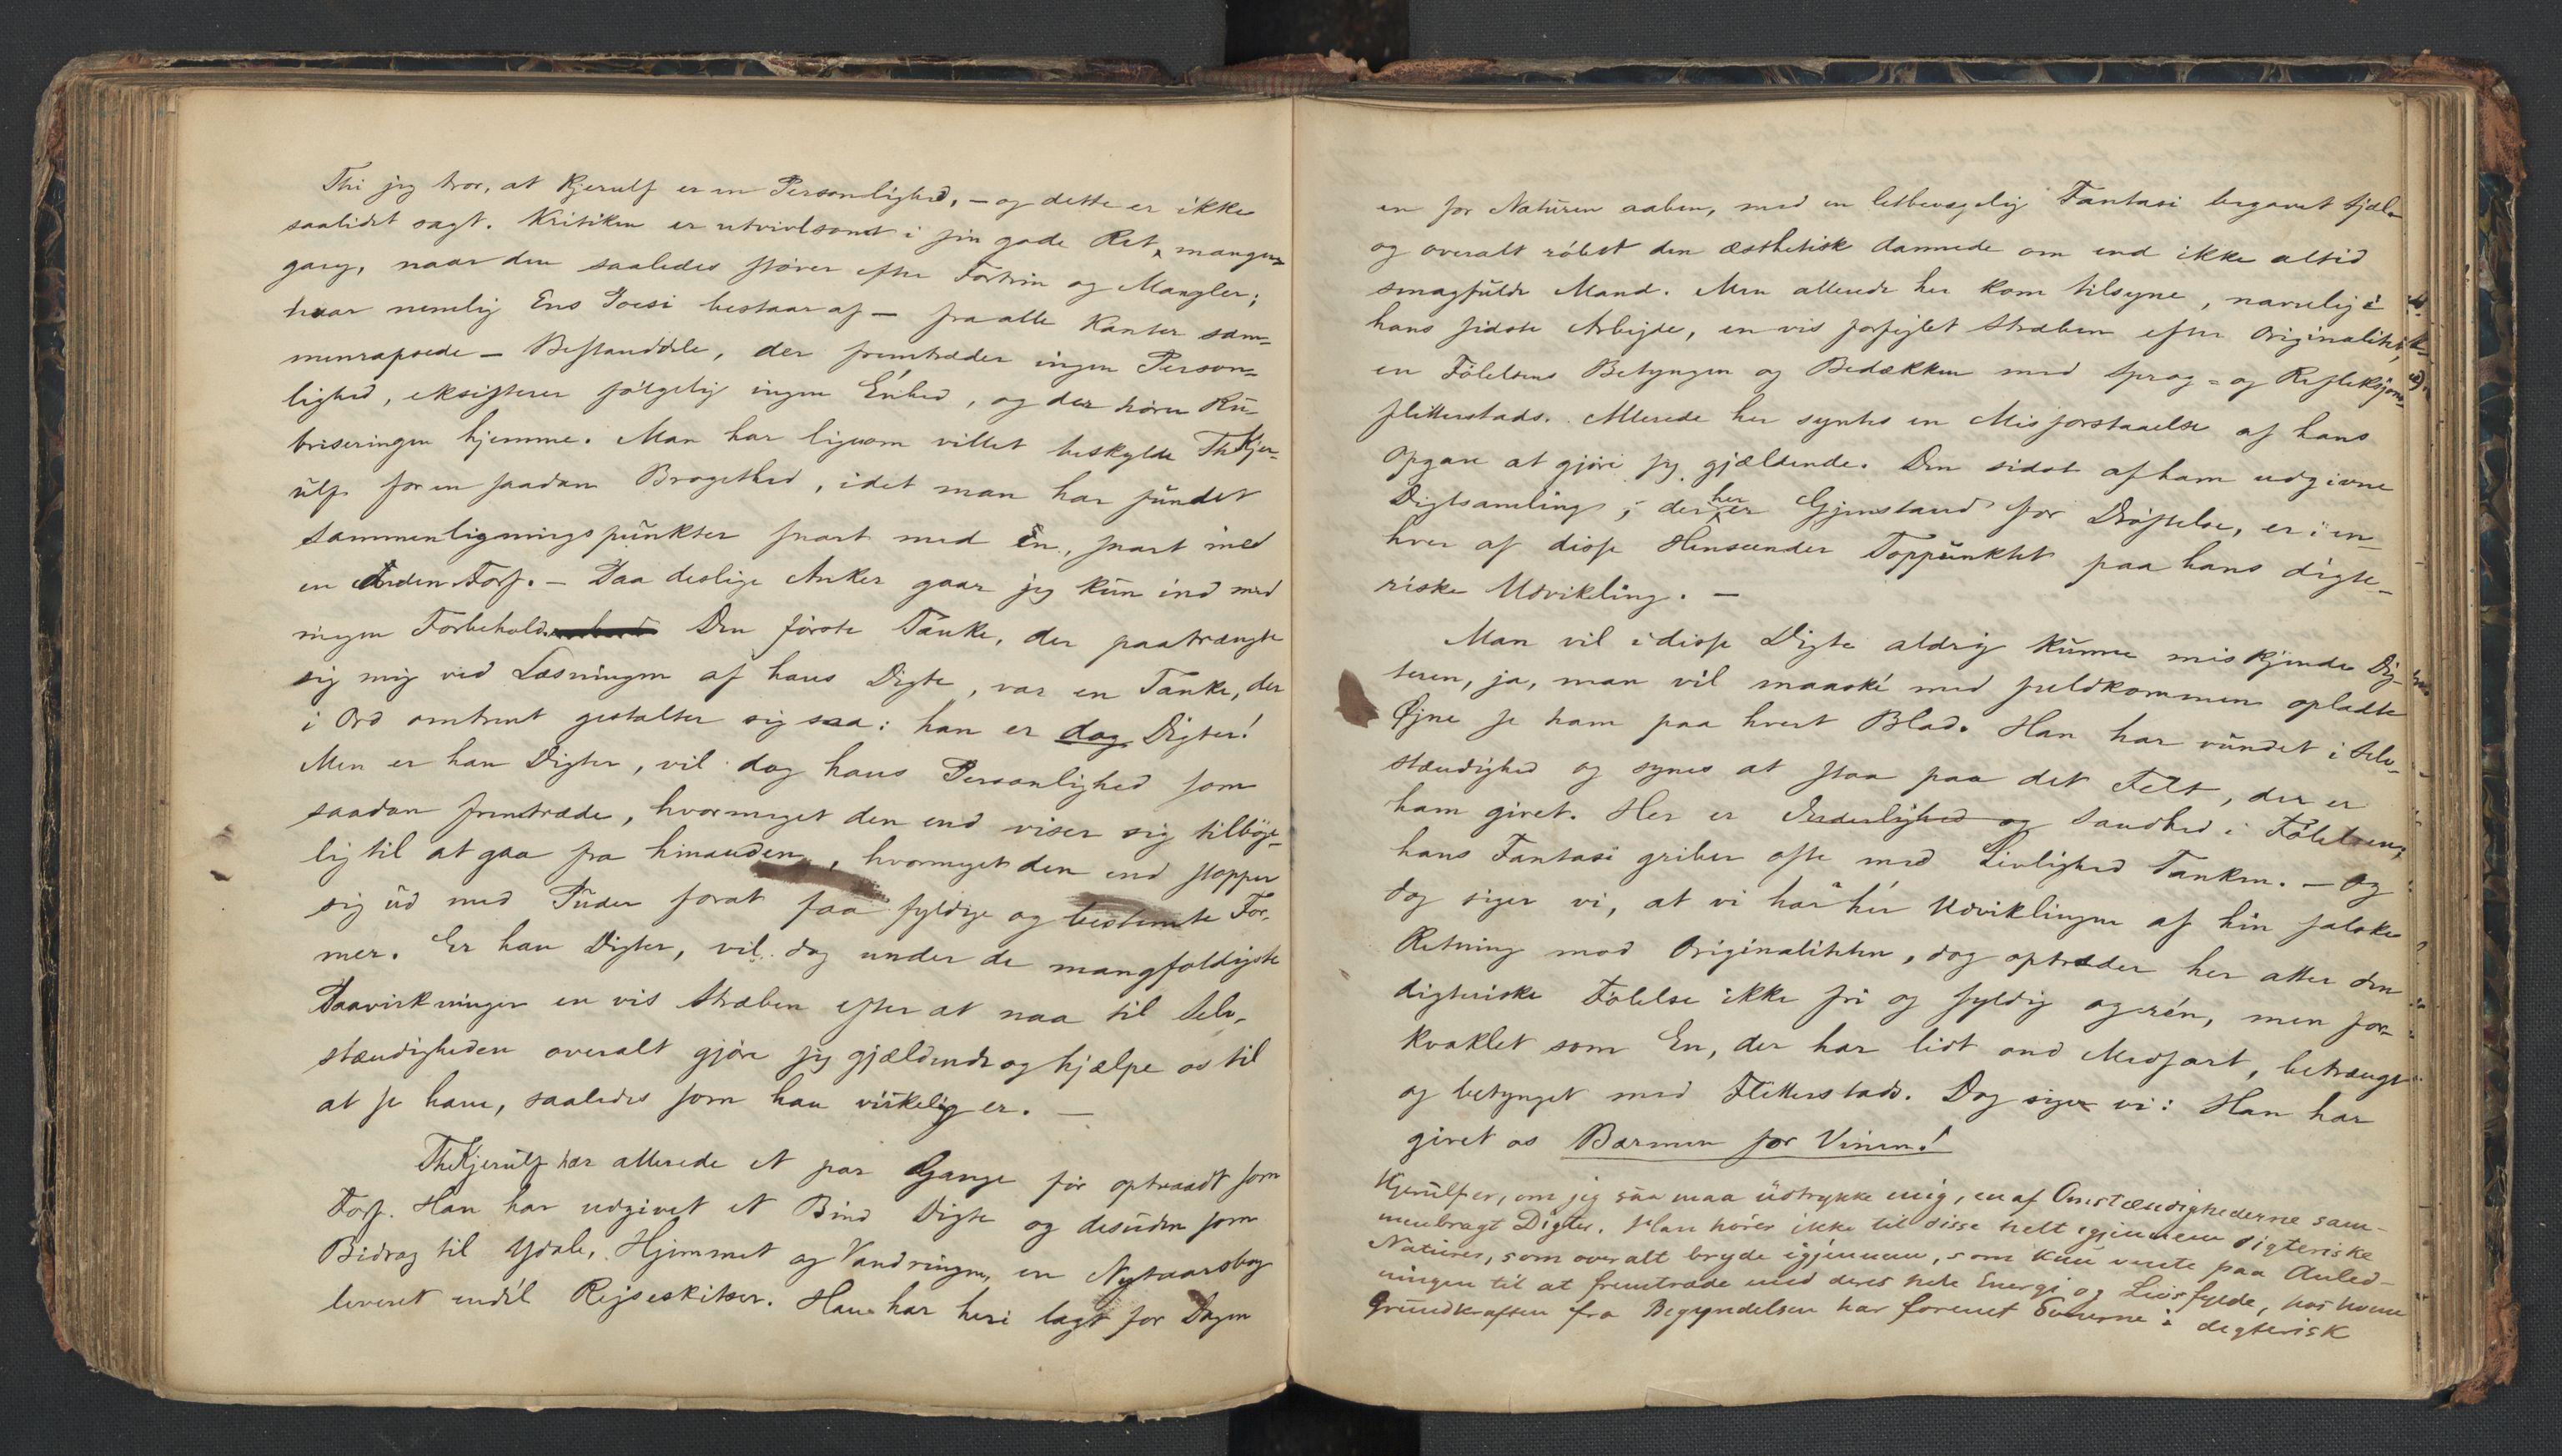 Thi jeg tror, at Kjerulf er en Personlighed, – og dette er ikke
saalidet sagt. Kritiken er utvivlsomt i sin gode Ret, mangen
gang, naar den saaledes støver efter Fortrin og Mangler;
hvor nemlig Ens Poesi bestaar af – fra alle Kanter sam-
menrapsede – Bestanddele, der fremtræder ingen Person-
lighed, eksisterer følgelig ingen Enhed, og der hører Ru-
briseringen hjemme. Man har ligesom villet beskylde Th Kjer-
ulf for en saadan Brogethed, idet man har fundet
Sammenligningspunkter snart med én, snart med
en Anden Forf. – Paa deslige Anker gaar jeg kun ind med
megen Forbehold. Den første Tanke, der paatrængte
sig mig ved Læsningen af hans Digte, var en Tanke, der
i Ord omtrent gestalter sig saa: han er dog Digter!
Men er han Digter, vil dog hans Personlighed som
saadan fremtræde, hvormeget den end viser sig tilbøje-
lig til at gaa fra hinanden, hvormeget den end stopper
sig ud med Puder forat faa fyldige og bestemte For-
mer. Er han Digter, vil dog under de mangfoldigste
Paavirkninger en vis Stræben efter at naa til Selv-
stændigheden overalt gjøre sig gjældende og hjælpe os til
at se ham, saaledes som han virkelig er. –
Th Kjerulf har allerede et par Gange før optraadt som
Forf. Han har udgivet et Bind Digte og desuden som
Bidrag til Ydale, Hjemmet og Vandringen, en Nytaarsbog
leveret endel Rejseskitser. Han har heri lagt for Dagen
en for Naturen aaben, med en letbevægelig Fantasi begavet Sjæl
og overalt røbet den æsthetisk dannede om end ikke altid
smagfulde Mand. Men allerede her kom tilsyne, navnlig i
hans sidste Arbejde, en vis forfejlet Stræben efter Originalitet,
en Følelsens Betyngen og Bedækken med Sprog- og Refleksjons-
flitterstads. Allerede her syntes en Misforstaaelse af hans
Opgave at gjøre sig gjældende. Den sidst af ham udgivne
Digtsamling, der her er Gjenstand for Drøftelse, er i en-
hver af disse Henseender Toppunktet paa hans digte-
riske Udvikling. –
Man vil i disse Digte aldrig kunne miskjende Dig-
teren, ja, man vil maaské med fuldkommen opladte
Øjne se ham paa hvert Blad. Han har vundet i Selv-
stændighed og synes at staa paa det Felt, der er
ham givet. Her er Inderlighed og Sandhed i Følelsen,
hans Fantasi griber ofte med Livlighed Tanken. – Og
dog siger vi, at vi har hér Udviklingen af hin falske
Retning mod Originaliteten, dog optræder her atter den
digteriske Følelse ikke fri og fyldig og rén, men for-
kvaklet som En, der har lidt ond Medfart, betrængt
og betynget med Flitterstads. Dog siger vi: Han har
givet os Bærmen for Vinen!
Kjerulf er, om jeg saa maa udtrykke mig, en af Omstændighederne sam-
menbragt Digter. Han hører ikke til disse helt igjennem digteriske
Naturer, som overalt bryde igjennem, som kun vente paa Anled-
ningen til at fremtræde med deres hele Energi og Livsfylde, hos hvem
Grundkraften fra Begyndelsen har forenet Evnerne i digterisk